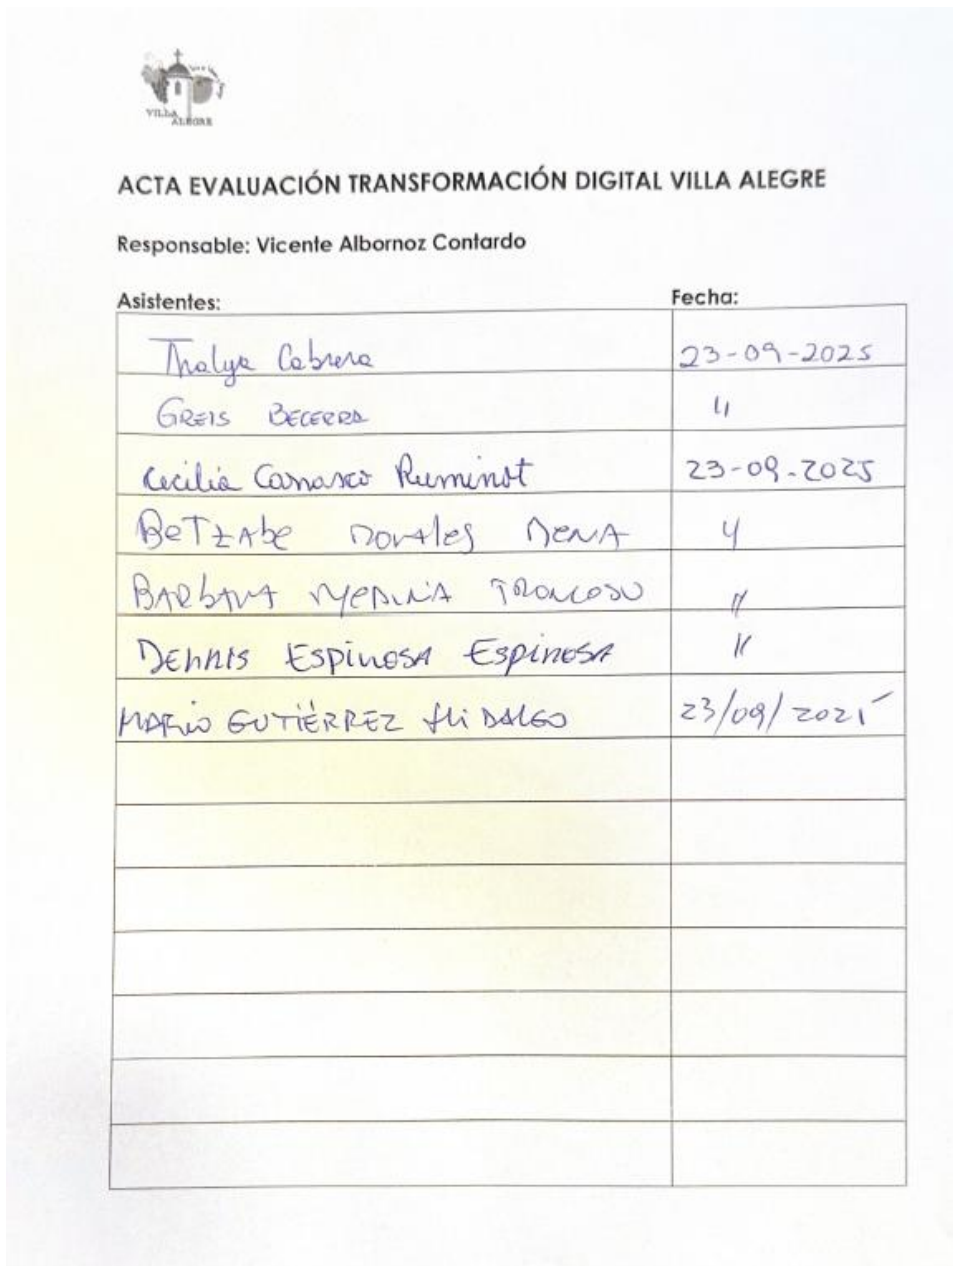 VILLA
ALEGRE
ACTA EVALUACIÓN TRANSFORMACIÓN DIGITAL VILLA ALEGRE
Responsable: Vicente Albornoz Contardo
Asistentes: Fecha:
Thalya Cabrera 23-09-2025
GREIS BECERRA "
Cecilia Carrasco Ruminot 23-09-2025
BETZAbe Morales MENA "
BARbARA MEDINA TRONCOSO "
DENNIS ESPINOSA ESPINOSA "
MARIO GUTIÉRREZ HIDALGO 23/09/2025